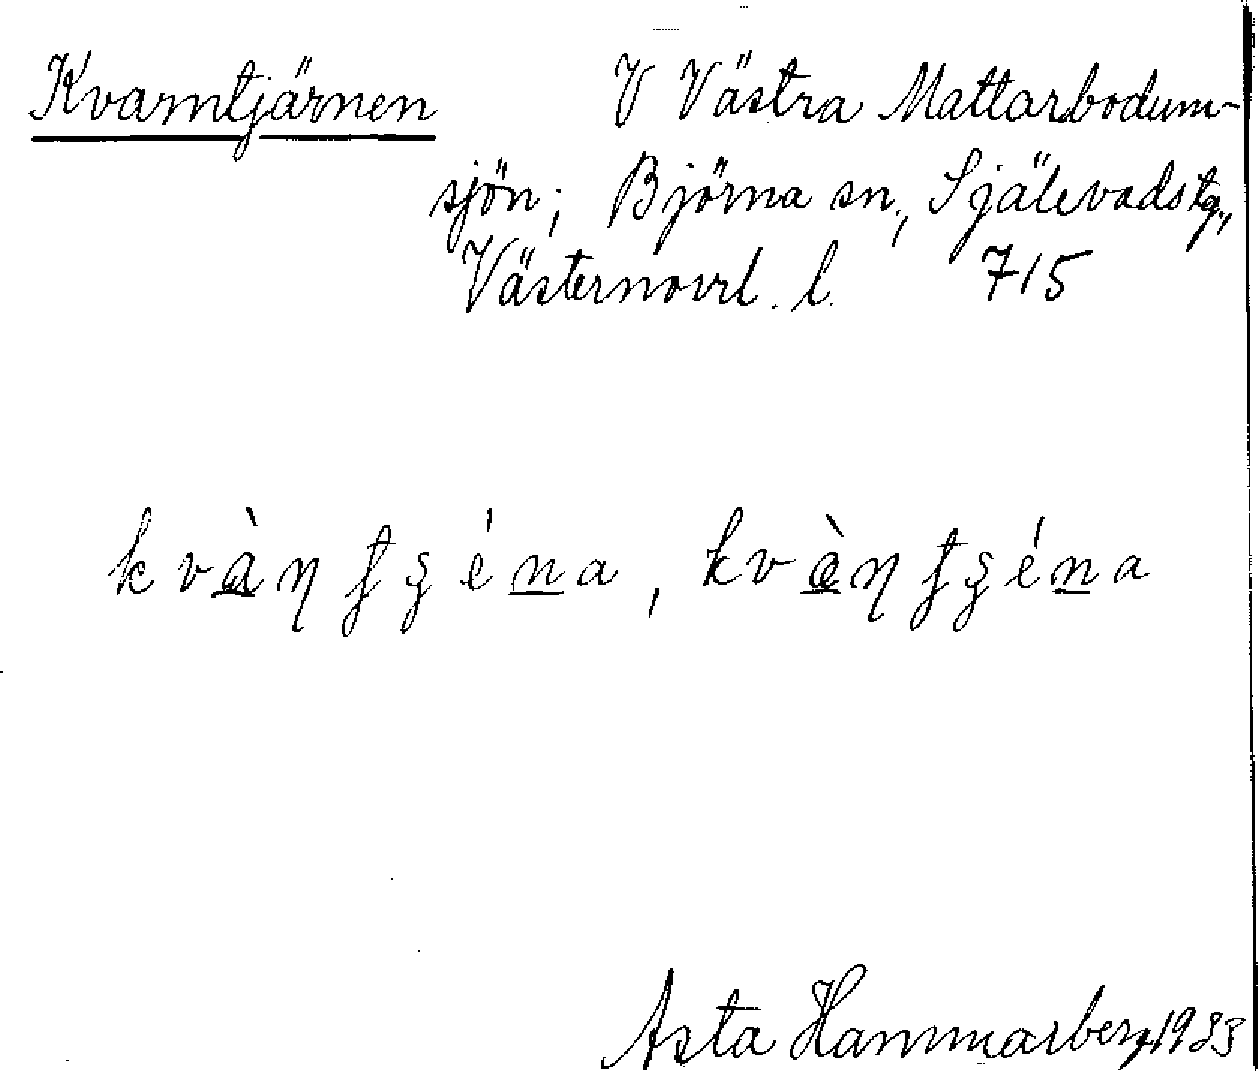 Kvarntjärnen V Västra Mattarbodum-
sjön; Björna sn, Själevads tg.,
Västernorrl. l. 715
kvàŋ ƭʂéna, kvàŋ ƭʂéna
Asta Hammarberg 1933